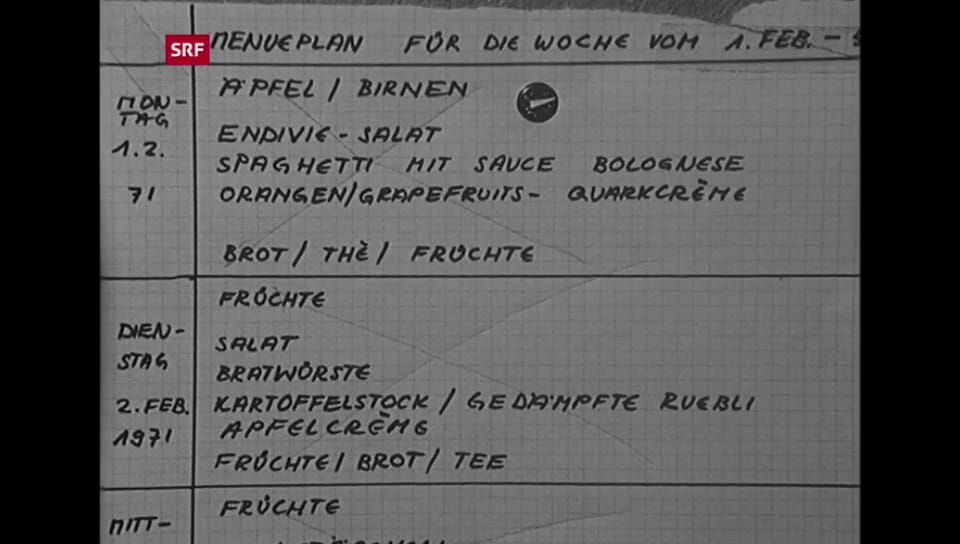 SRF
MENUEPLAN FÜR DIE WOCHE VOM 1. FEB. -
MON-
TAG
1.2.
71
ÄPFEL / BIRNEN
ENDIVIE - SALAT
SPAGHETTI MIT SAUCE BOLOGNESE
ORANGEN/GRAPEFRUITS- QUARKCRÈME
BROT / THÈ / FRÜCHTE
DIEN-
STAG
2. FEB.
1971
FRÜCHTE
SALAT
BRATWÜRSTE
KARTOFFELSTOCK / GEDÄMPFTE RUEBLI
APFELCRÈME
FRÜCHTE / BROT / TEE
MITT-
FRÜCHTE